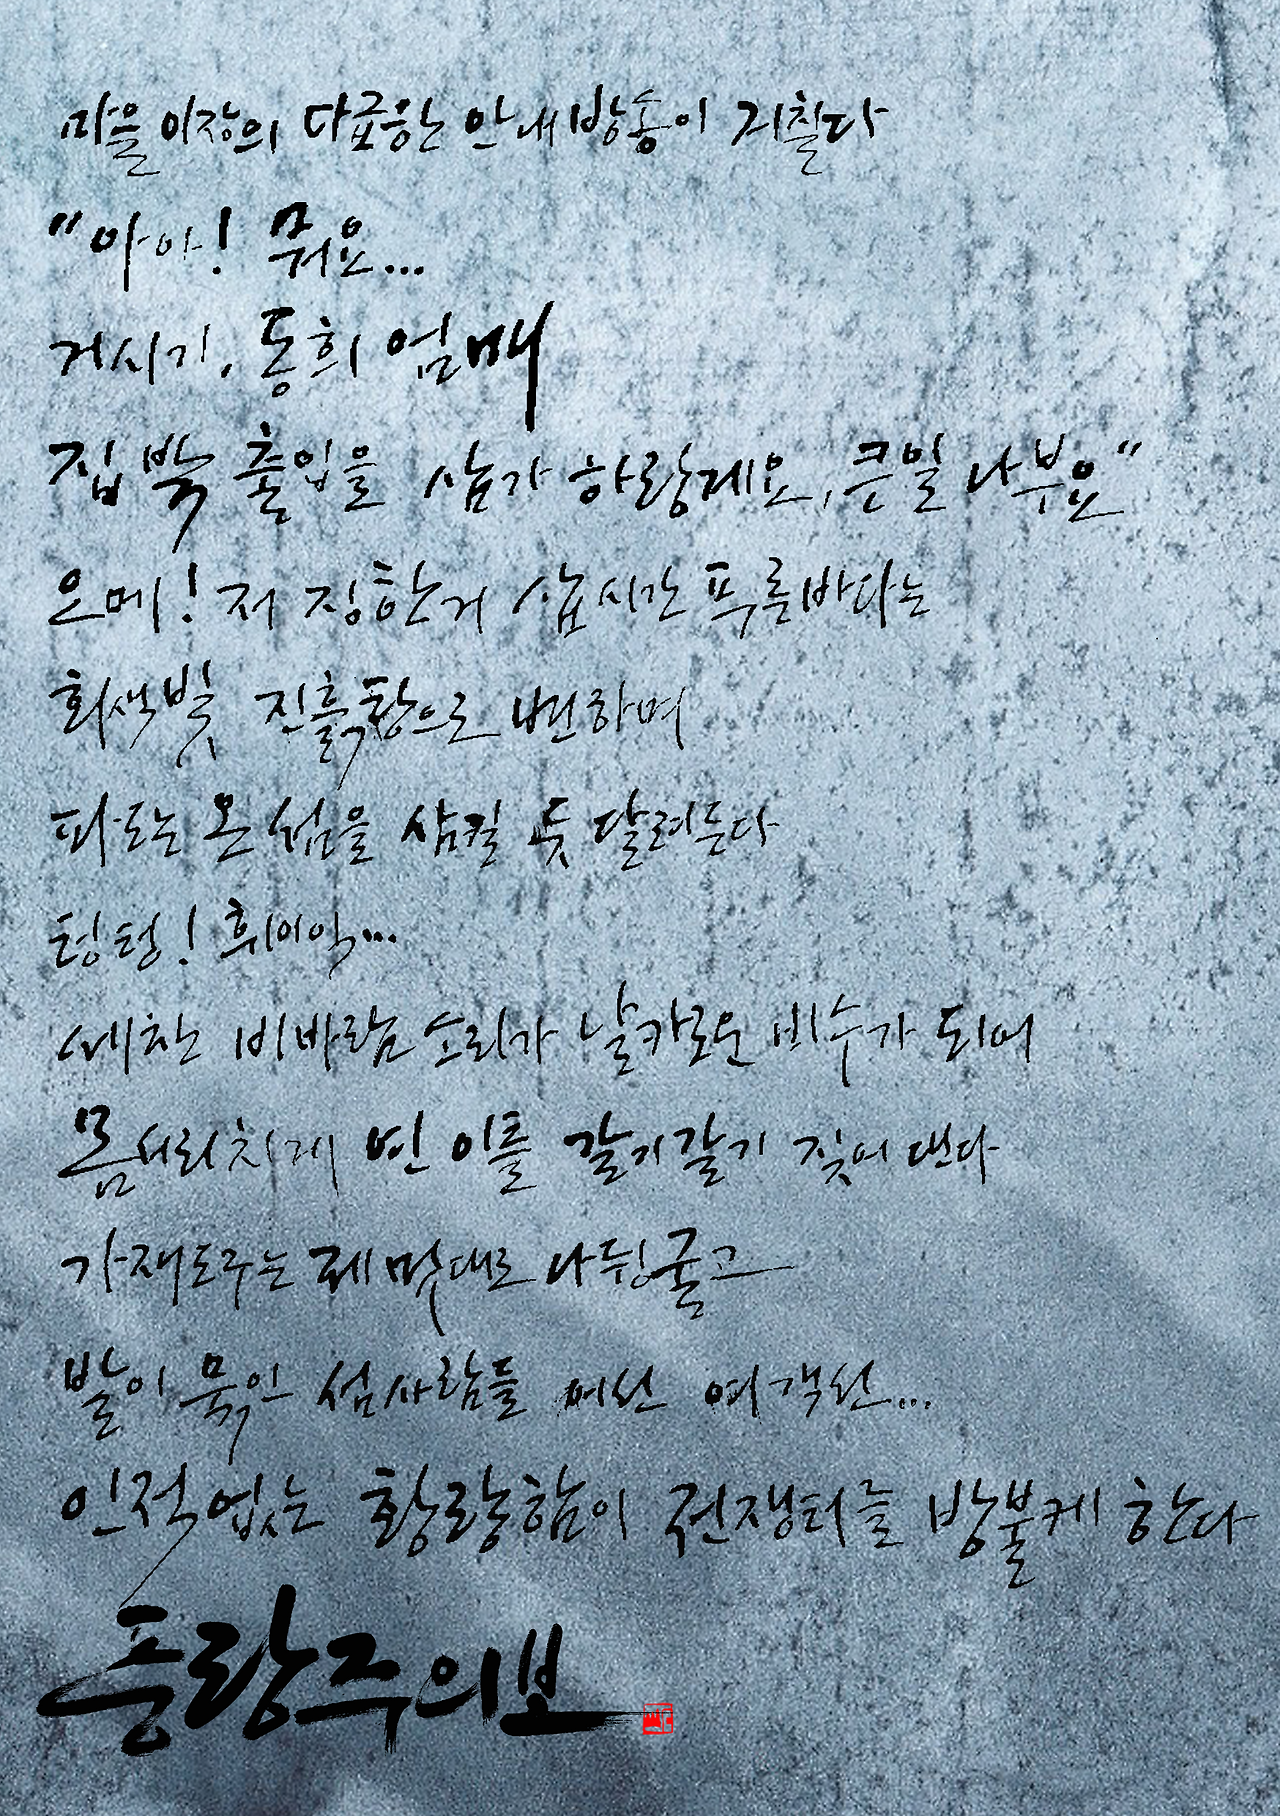 마을이장의 다급한 안내방송이 거칠다
"아아! 뭐요...
거시기, 동희 엄매
집 밖 출입을 삼가 하랑께요, 큰일 나부요"
으메! 저 징한거 삽시간 푸른바다는
회색빛 진흙탕으로 변하며
파도는 온 섬을 삼킬 듯 달려든다
텅텅! 휘이익...
세찬 비바람 소리가 날카로운 비수가 되어
몸서리치게 빈 이를 갈기갈기 찢어 댄다
가재도구는 제 멋대로 나뒹굴고
발이 묶인 섬사람들 여객선...
인적없는 황량함이 전쟁터를 방불케 한다
풍랑주의보